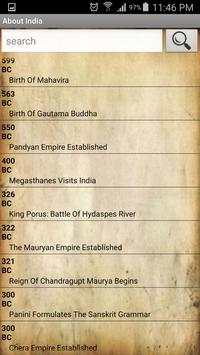 82% 11:46 PM
About India
search
599
BC
Birth Of Mahavira
563
BC
Birth Of Gautama Buddha
550
BC
Pandyan Empire Established
400
BC
Megasthanes Visits India
326
BC
King Porus: Battle Of Hydaspes River
322
BC
The Mauryan Empire Established
321
BC
Reign Of Chandragupt Maurya Begins
300
BC
Panini Formulates The Sanskrit Grammar
300
BC
Chera Empire Established